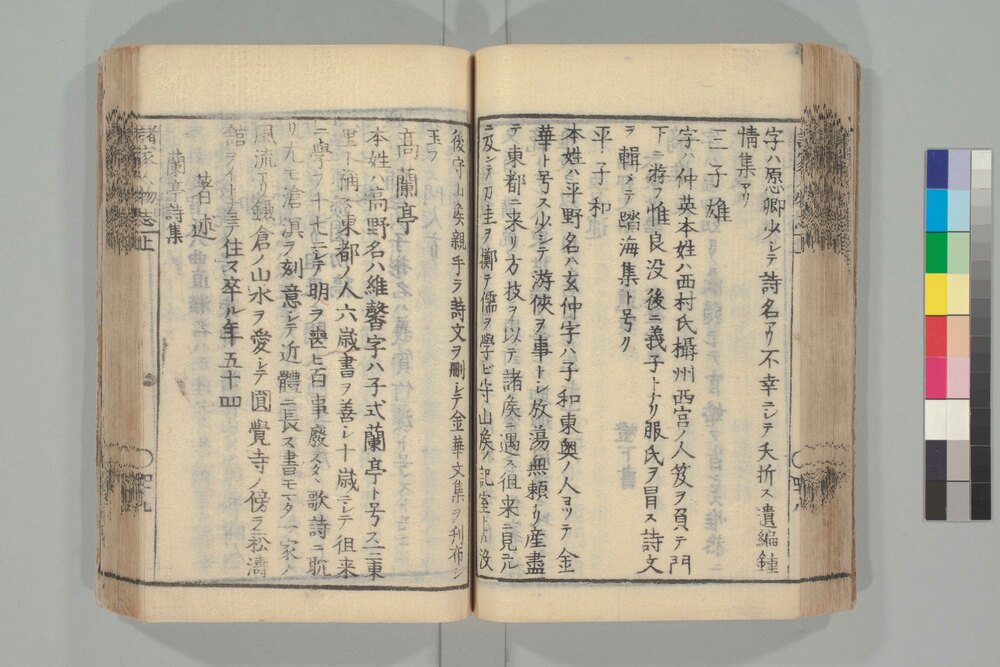 字ハ愿卿少シテ詩名アリ不幸ニシテ夭折ス遺編鍾
情集アリ
三子雄
字ハ仲英本姓ハ西村氏攝州西宮ノ人笈ヲ負テ門
下ニ游フ惟良没後ニ義子トナリ服氏ヲ冒ス詩文
ヲ輯メテ踏海集ト号ク
平子和
本姓ハ平野名ハ玄仲字ハ子和東奥ノ人ヨツテ金
華ト号ス少シテ游侠ヲ事トシ放蕩無頼ナリ産盡
テ東都ニ来リ方技ヲ以テ諸矦ニ遇ス徂来ニ見ユル
ニ及シテ刀圭ヲ擲テ儒ヲ學ビ守山矦ノ記室トナル没
後守山矦親手ラ詩文ヲ刪シテ金華文集ヲ刊布シ
玉フ
髙蘭亭
本姓ハ高野名ハ維馨字ハ子式蘭亭ト号ス又東
里ト稱ス東都ノ人六歳書ヲ善シ十歳ニシテ徂来
ニ學ヒ十七ニシテ明ヲ喪ヒ百事廢スタヽ歌詩ニ耽
リ尤モ滄溟ヲ刻意シテ近體ニ長ス書モマタ一家ノ
風流アリ鎌倉ノ山水ヲ愛シテ圓覺寺ノ傍ラ松濤
館ヲイトナミテ住ス卒ル年五十四
著述
蘭亭詩集
諸家人物志上
四十九